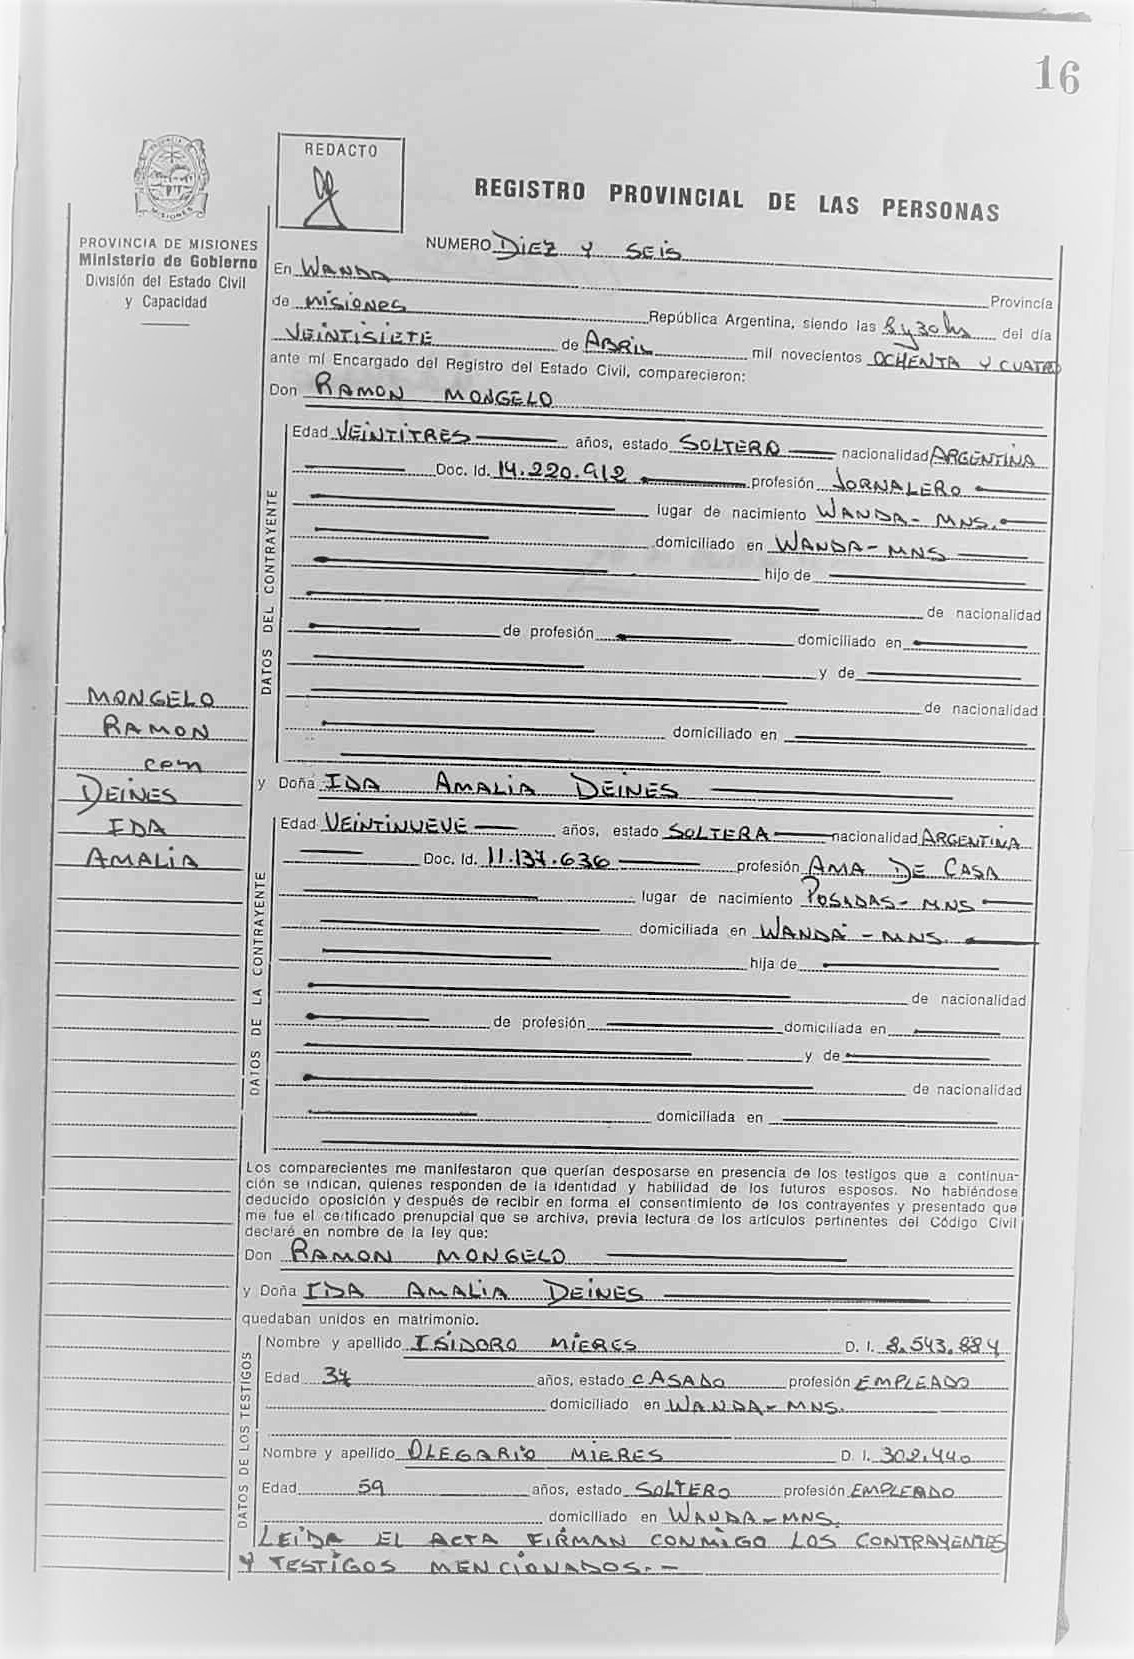 16
REDACTO
REGISTRO PROVINCIAL DE LAS PERSONAS
PROVINCIA DE MISIONES
Ministerio de Gobierno
División del Estado Civil
y Capacidad
NUMERO DIEZ Y SEIS
En WANDA Provincia
de MISIONES República Argentina, siendo las 8 y 30 hs del día
VEINTISIETE de ABRIL mil novecientos OCHENTA Y CUATRO
ante mí Encargado del Registro del Estado Civil, comparecieron:
Don RAMON MONGELO
DATOS DEL CONTRAYENTE
Edad VEINTITRES años, estado SOLTERO nacionalidad ARGENTINA
Doc. Id. 14.220.912 profesión JORNALERO
lugar de nacimiento WANDA - MNS.
domiciliado en WANDA - MNS
hijo de
de nacionalidad
de profesión domiciliado en
y de
de nacionalidad
domiciliado en
MONGELO
RAMON
con
DEINES
IDA
AMALIA
y Doña IDA AMALIA DEINES
DATOS DE LA CONTRAYENTE
Edad VEINTINUEVE años, estado SOLTERA nacionalidad ARGENTINA
Doc. Id. 11.137.636 profesión AMA DE CASA
lugar de nacimiento POSADAS - MNS
domiciliada en WANDA - MNS.
hija de
de nacionalidad
de profesión domiciliada en
y de
de nacionalidad
domiciliada en
Los comparecientes me manifestaron que querían desposarse en presencia de los testigos que a continua-
ción se indican, quienes responden de la identidad y habilidad de los futuros esposos. No habiéndose
deducido oposición y después de recibir en forma el consentimiento de los contrayentes y presentado que
me fue el certificado prenupcial que se archiva, previa lectura de los artículos pertinentes del Código Civil
declaré en nombre de la ley que:
Don RAMON MONGELO
y Doña IDA AMALIA DEINES
quedaban unidos en matrimonio.
DATOS DE LOS TESTIGOS
Nombre y apellido ISIDORO MIERES D. I. 8.543.884
Edad 34 años, estado CASADO profesión EMPLEADO
domiciliado en WANDA - MNS.
Nombre y apellido OLEGARIO MIERES D. I. 302.440
Edad 59 años, estado SOLTERO profesión EMPLEADO
domiciliado en WANDA - MNS.
LEIDA EL ACTA FIRMAN CONMIGO LOS CONTRAYENTES
Y TESTIGOS MENCIONADOS.-